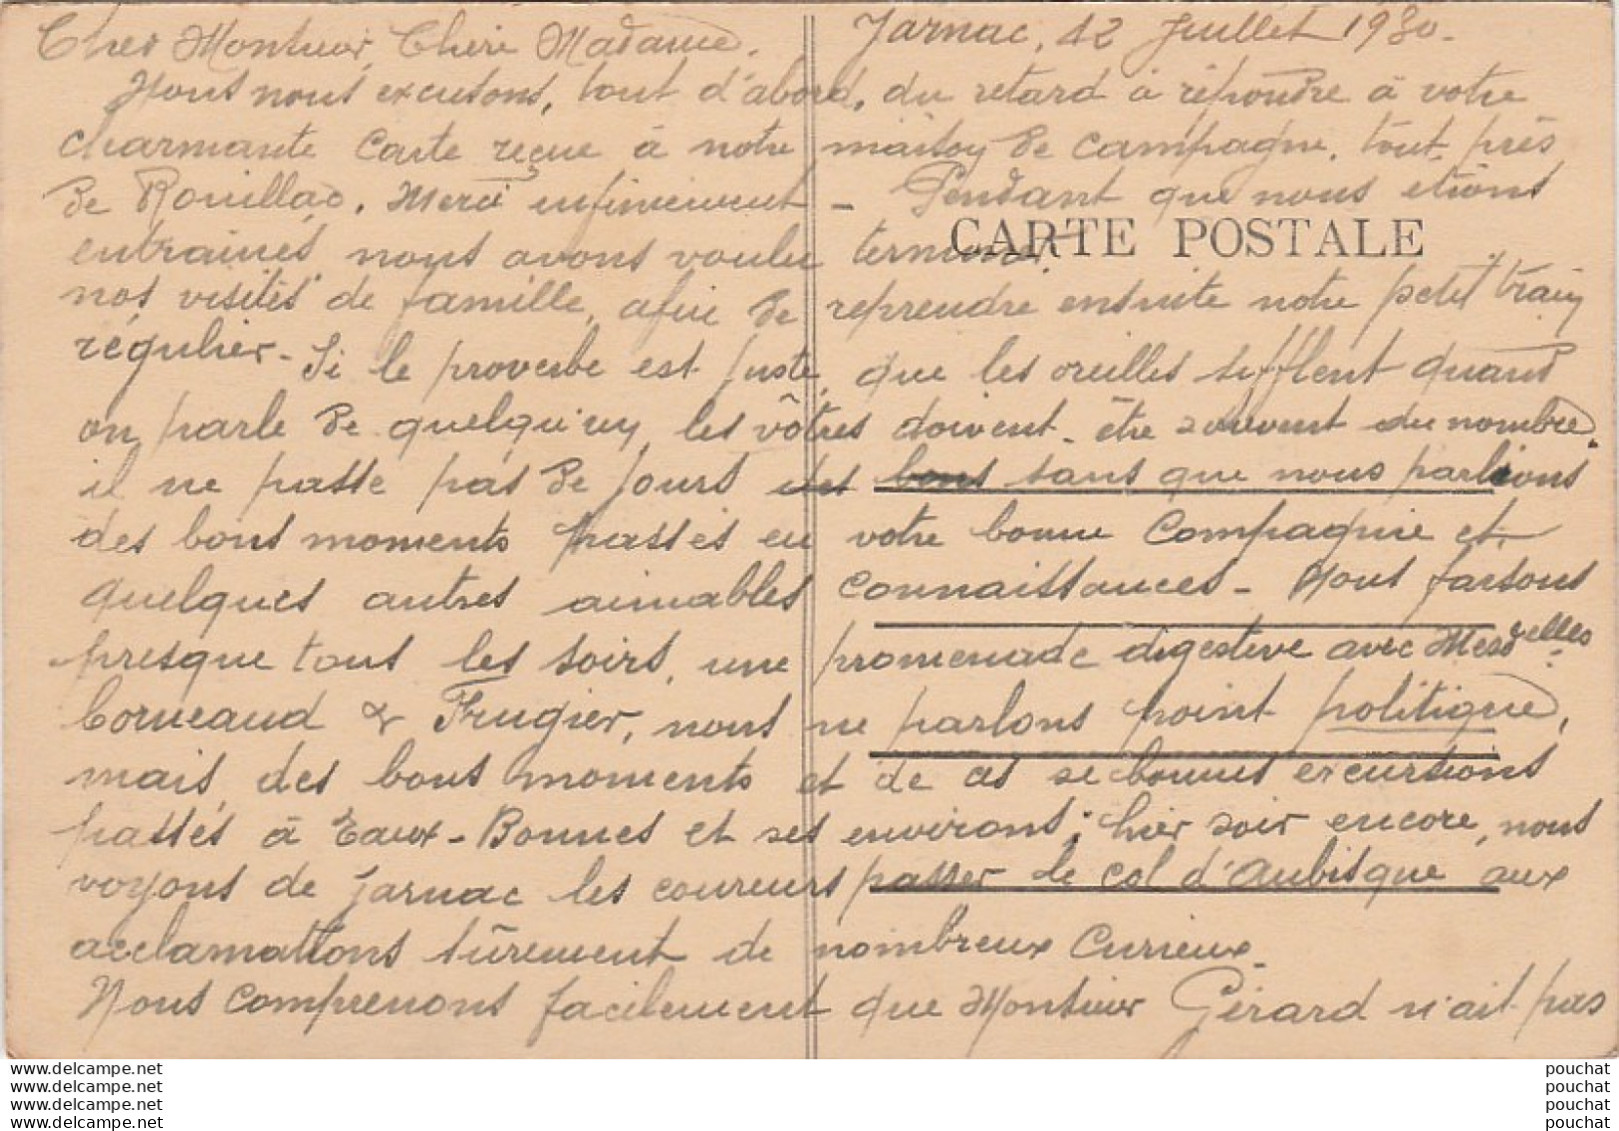 Cher Monsieur, Chère Madame. Jarnac, 12 Juillet 1930.
Nous nous excusons, tout d'abord, du retard à répondre à votre
charmante carte reçue à notre maison de campagne, tout près
de Rouillac. Merci infiniment - Pendant que nous étions
CARTE POSTALE
entrainés nous avons voulu terminer
nos visites de famille, afin de reprendre ensuite notre petit train
régulier - Si le proverbe est juste, que les oreilles sifflent quand
on parle de quelqu'un, les vôtres doivent être souvent du nombre,
il ne passe pas de jours sans que nous parlions
des bons moments passés en votre bonne Compagnie et
quelques autres aimables connaissances - Nous faisons
presque tous les soirs, une promenade digestive avec Mesdelles
Corneaud & Frugier, nous ne parlons point politique,
mais des bons moments et de ces si bonnes excursions
passés à Eaux-Bonnes et ses environs; hier soir encore, nous
voyons de Jarnac les coureurs passer le col d'Aubisque aux
acclamations sûrement de nombreux Curieux -
Nous comprenons facilement que Monsieur Gérard n'ait pas
www.delcampe.net pouchat
www.delcampe.net pouchat
www.delcampe.net pouchat
www.delcampe.net pouchat